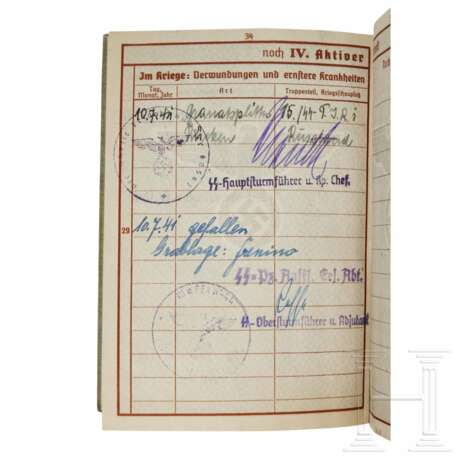 34
noch IV. Aktiver
Im Kriege: Verwundungen und ernstere Krankheiten
Tag, Monat, Jahr Art Truppenteil, Kriegsschauplatz
10.7.41 Granatsplitter 16./SS-T.I.R. 1
Rücken Russland
SS-Hauptsturmführer u. Kp. Chef.
29 10.7.41 gefallen
Grablage:
SS-Pz. Ers. Abt.
SS-Obersturmführer und Adjutant